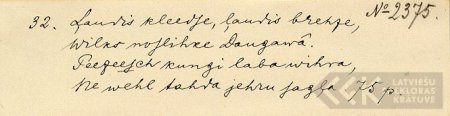 №2375.
32. Laudis kleedſe, laudis brehze,
Wilks noſlihke Daugawâ.
Peezeeſch kungi laba wihra,
Ne wehl tahda jehru ſagļa 75 p.
LATVIEŠU
FOLKLORAS
KRĀTUVE